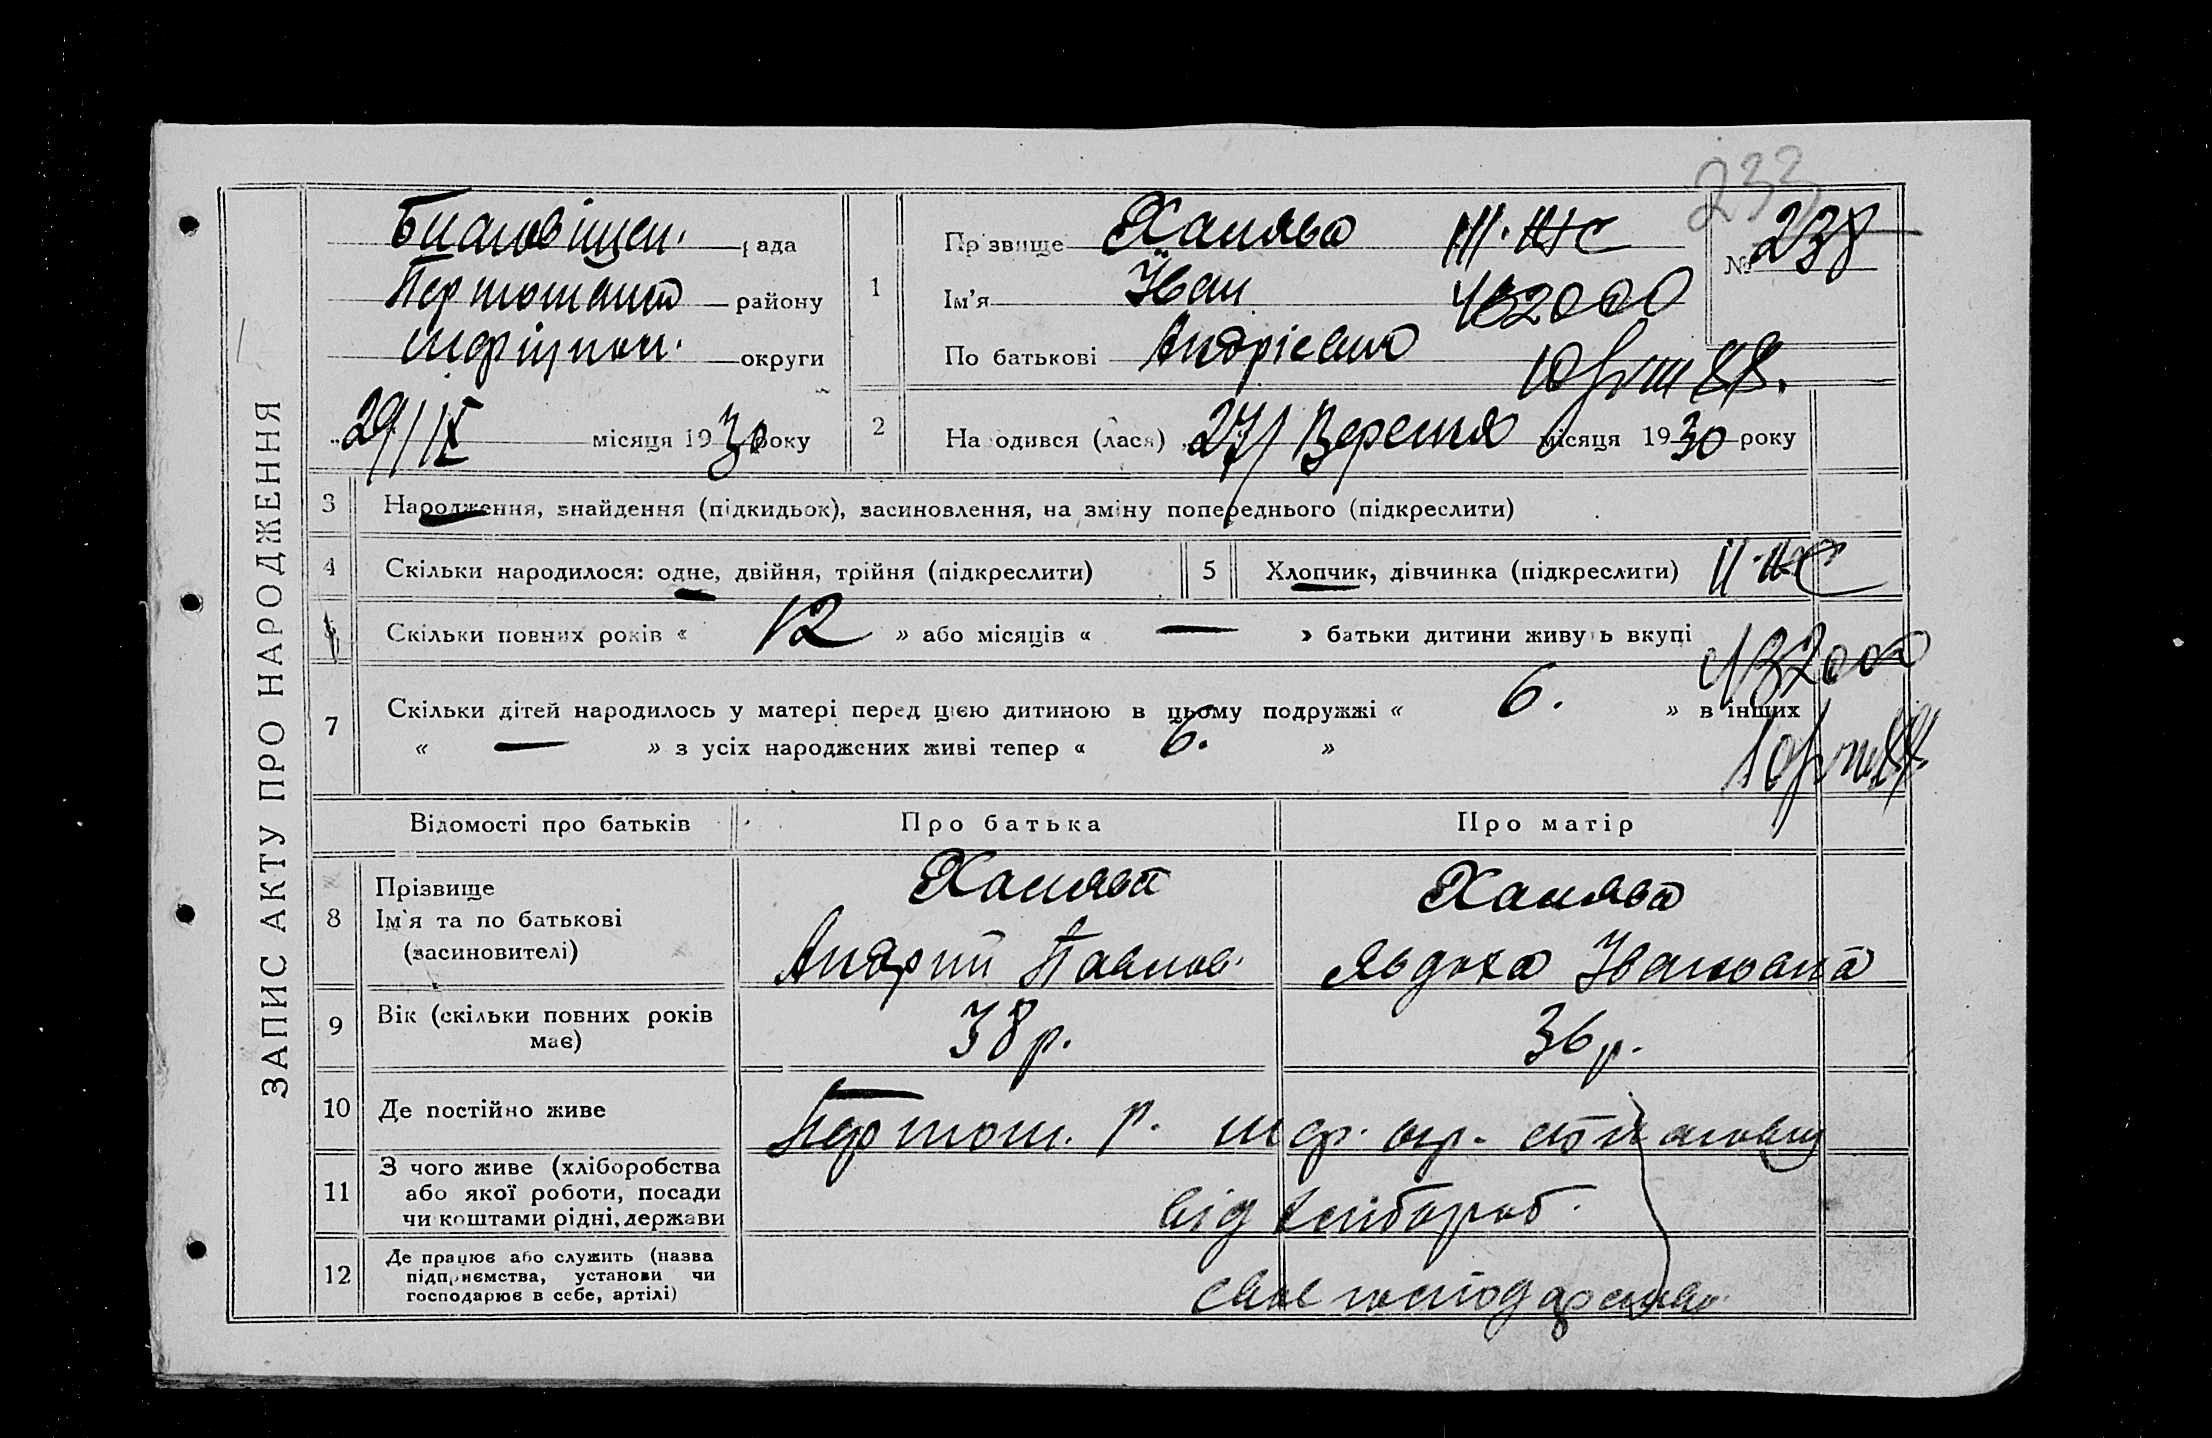 233
ЗАПИС АКТУ ПРО НАРОДЖЕННЯ
рада
району
округи
29/IX місяця 1930 року
1
Прізвище Ханява
Ім'я Іван
По батькові Андрієвич
№ 238
2 Народився (лася) 27/ Вересня місяця 1930 року
3 Народження, знайдення (підкидьок), засиновлення, на зміну попереднього (підкреслити)
4 Скільки народилося: одне, двійня, трійня (підкреслити) 5 Хлопчик, дівчинка (підкреслити)
Скільки повних років « 12 » або місяців « — » батьки дитини живуть вкупі
7 Скільки дітей народилось у матері перед цією дитиною в цьому подружжі « 6. » в інших
« — » з усіх народжених живі тепер « 6. »
Відомості про батьків Про батька Про матір
8 Прізвище Ханява Ханява
Ім'я та по батькові
(засиновителі) Андрий Павлов. Явдоха Івановна
9 Вік (скільки повних років має) 38 р. 36 р.
10 Де постійно живе р. окр.
11 З чого живе (хліборобства
або якої роботи, посади
чи коштами рідні, держави від хлібороб.
12 Де працює або служить (назва
підприємства, установи чи
господарює в себе, артілі) своє господарство